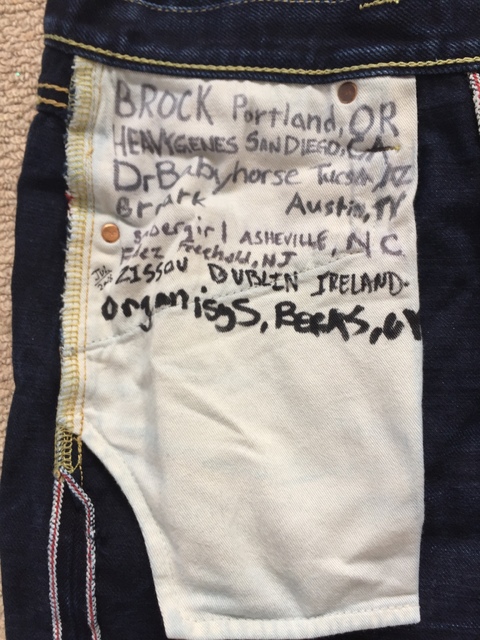 BROCK Portland, OR
HEAVYGENES SAN DIEGO, CA
DrBabyhorse Tucson, AZ
Austin, TX
ASHEVILLE, NC
Freehold, NJ
ZISSOU DUBLIN IRELAND.
OrganisgS, BERKS,